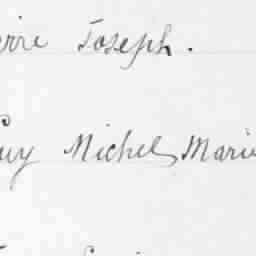 erre Joseph.
Guy Michel Marie